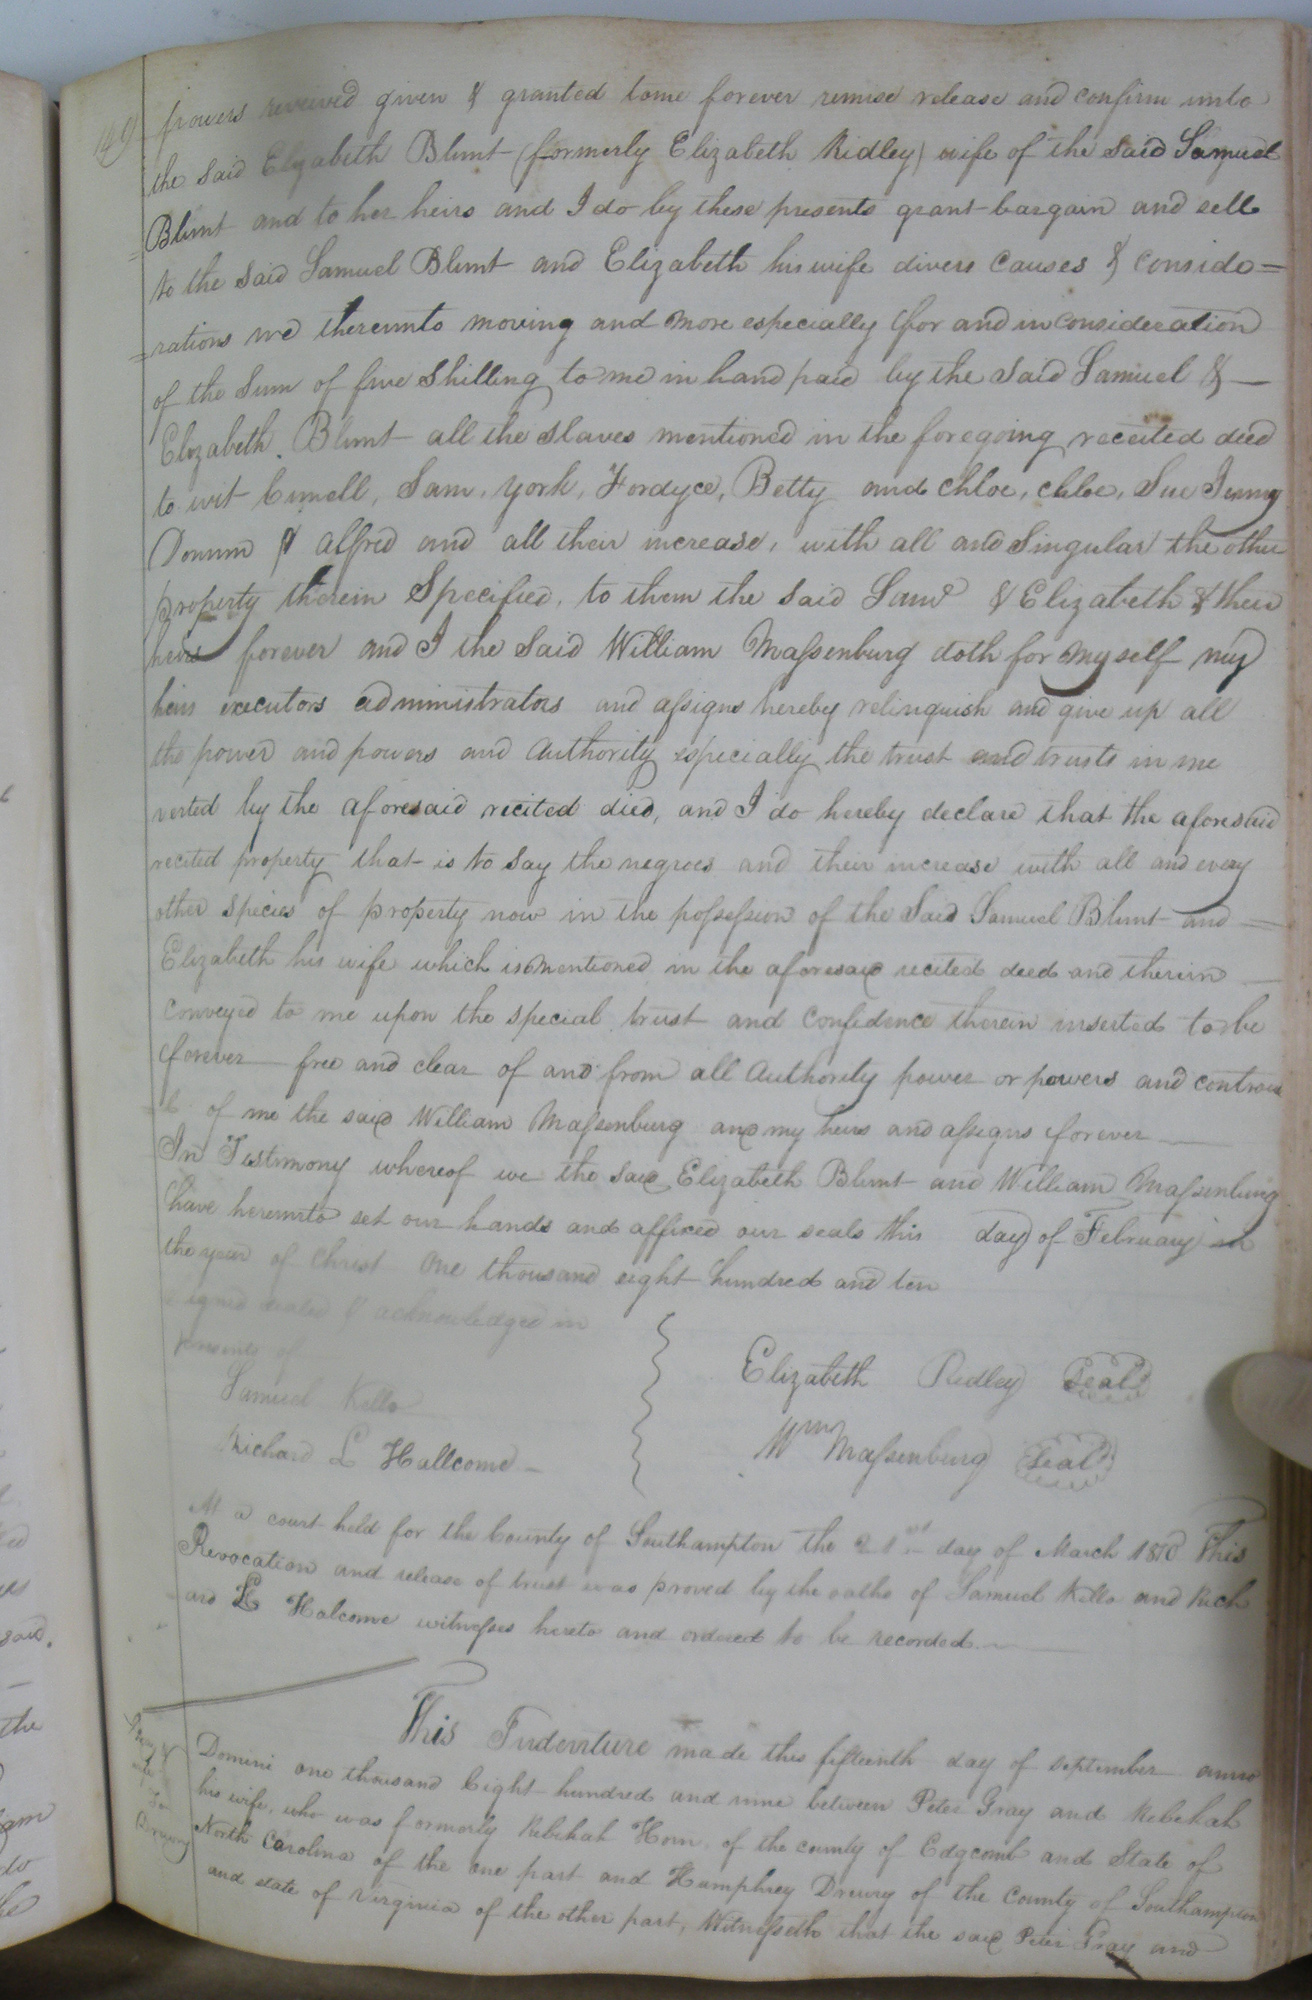 149
powers received given & granted to me forever remise release and confirm unto
the said Elizabeth Blunt (formerly Elizabeth Ridley) wife of the said Samuel
Blunt and to her heirs and I do by these presents grant bargain and sell
to the said Samuel Blunt and Elizabeth his wife divers causes & conside=
=rations me thereunto moving and more especially for and in consideration
of the Sum of five Shilling to me in hand paid by the said Samuel &
Elizabeth Blunt all the slaves mentioned in the foregoing receited deed
to wit Sam, York, Fordyce, Betty and Chloe, chloe, Sue Jenny
& Alfred and all their increase, with all and Singular the other
property therein Specified, to them the said Saml & Elizabeth & their
heirs forever and I the Said William Massenburg doth for myself my
heirs executors administrators and assigns hereby relinquish and give up all
the power and powers and authority especially the trust and trusts in me
vested by the aforesaid recited deed, and I do hereby declare that the aforesaid
recited property that is to say the negroes and their increase with all and every
other species of property now in the possession of the Said Samuel Blunt and =
Elizabeth his wife which is mentioned in the aforesaid recited deed and therein
conveyed to me upon the special trust and confidence therein inserted to be
forever free and clear of and from all authority power or powers and controul
of me the said William Massenburg and my heirs and assigns forever
In Testimony whereof we the said Elizabeth Blunt and William Massenburg
have hereunto set our hands and affixed our seals this day of February in
the year of Christ One thousand eight hundred and ten
Signed sealed & acknowledged in
presence of
Elizabeth Ridley Seal
Samuel Kello
Wm Massenburg Seal
Richard L Hallcome
At a court held for the County of Southampton the day of March 1810 This
Revocation and release of trust was proved by the oaths of Samuel Kello and Rich
ard L Halcome witnesses hereto and ordered to be recorded
This Indenture made this fifteenth day of september anno
Domini one thousand Eight hundred and nine between Peter Gray and Rebekah
his wife, who was formerly Rebekah Horn of the county of Edgcomb and State of
North Carolina of the one part and Humphrey Drewry of the County of Southampton
and state of Virginia of the other part, Witnesseth that the said Peter Gray and